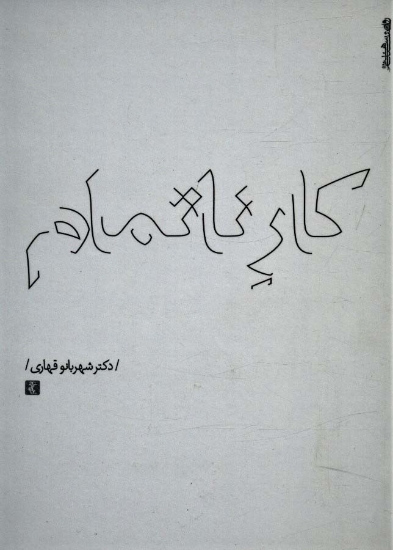 کارِ ناتمام
/ دکتر شهربانو قهاری /